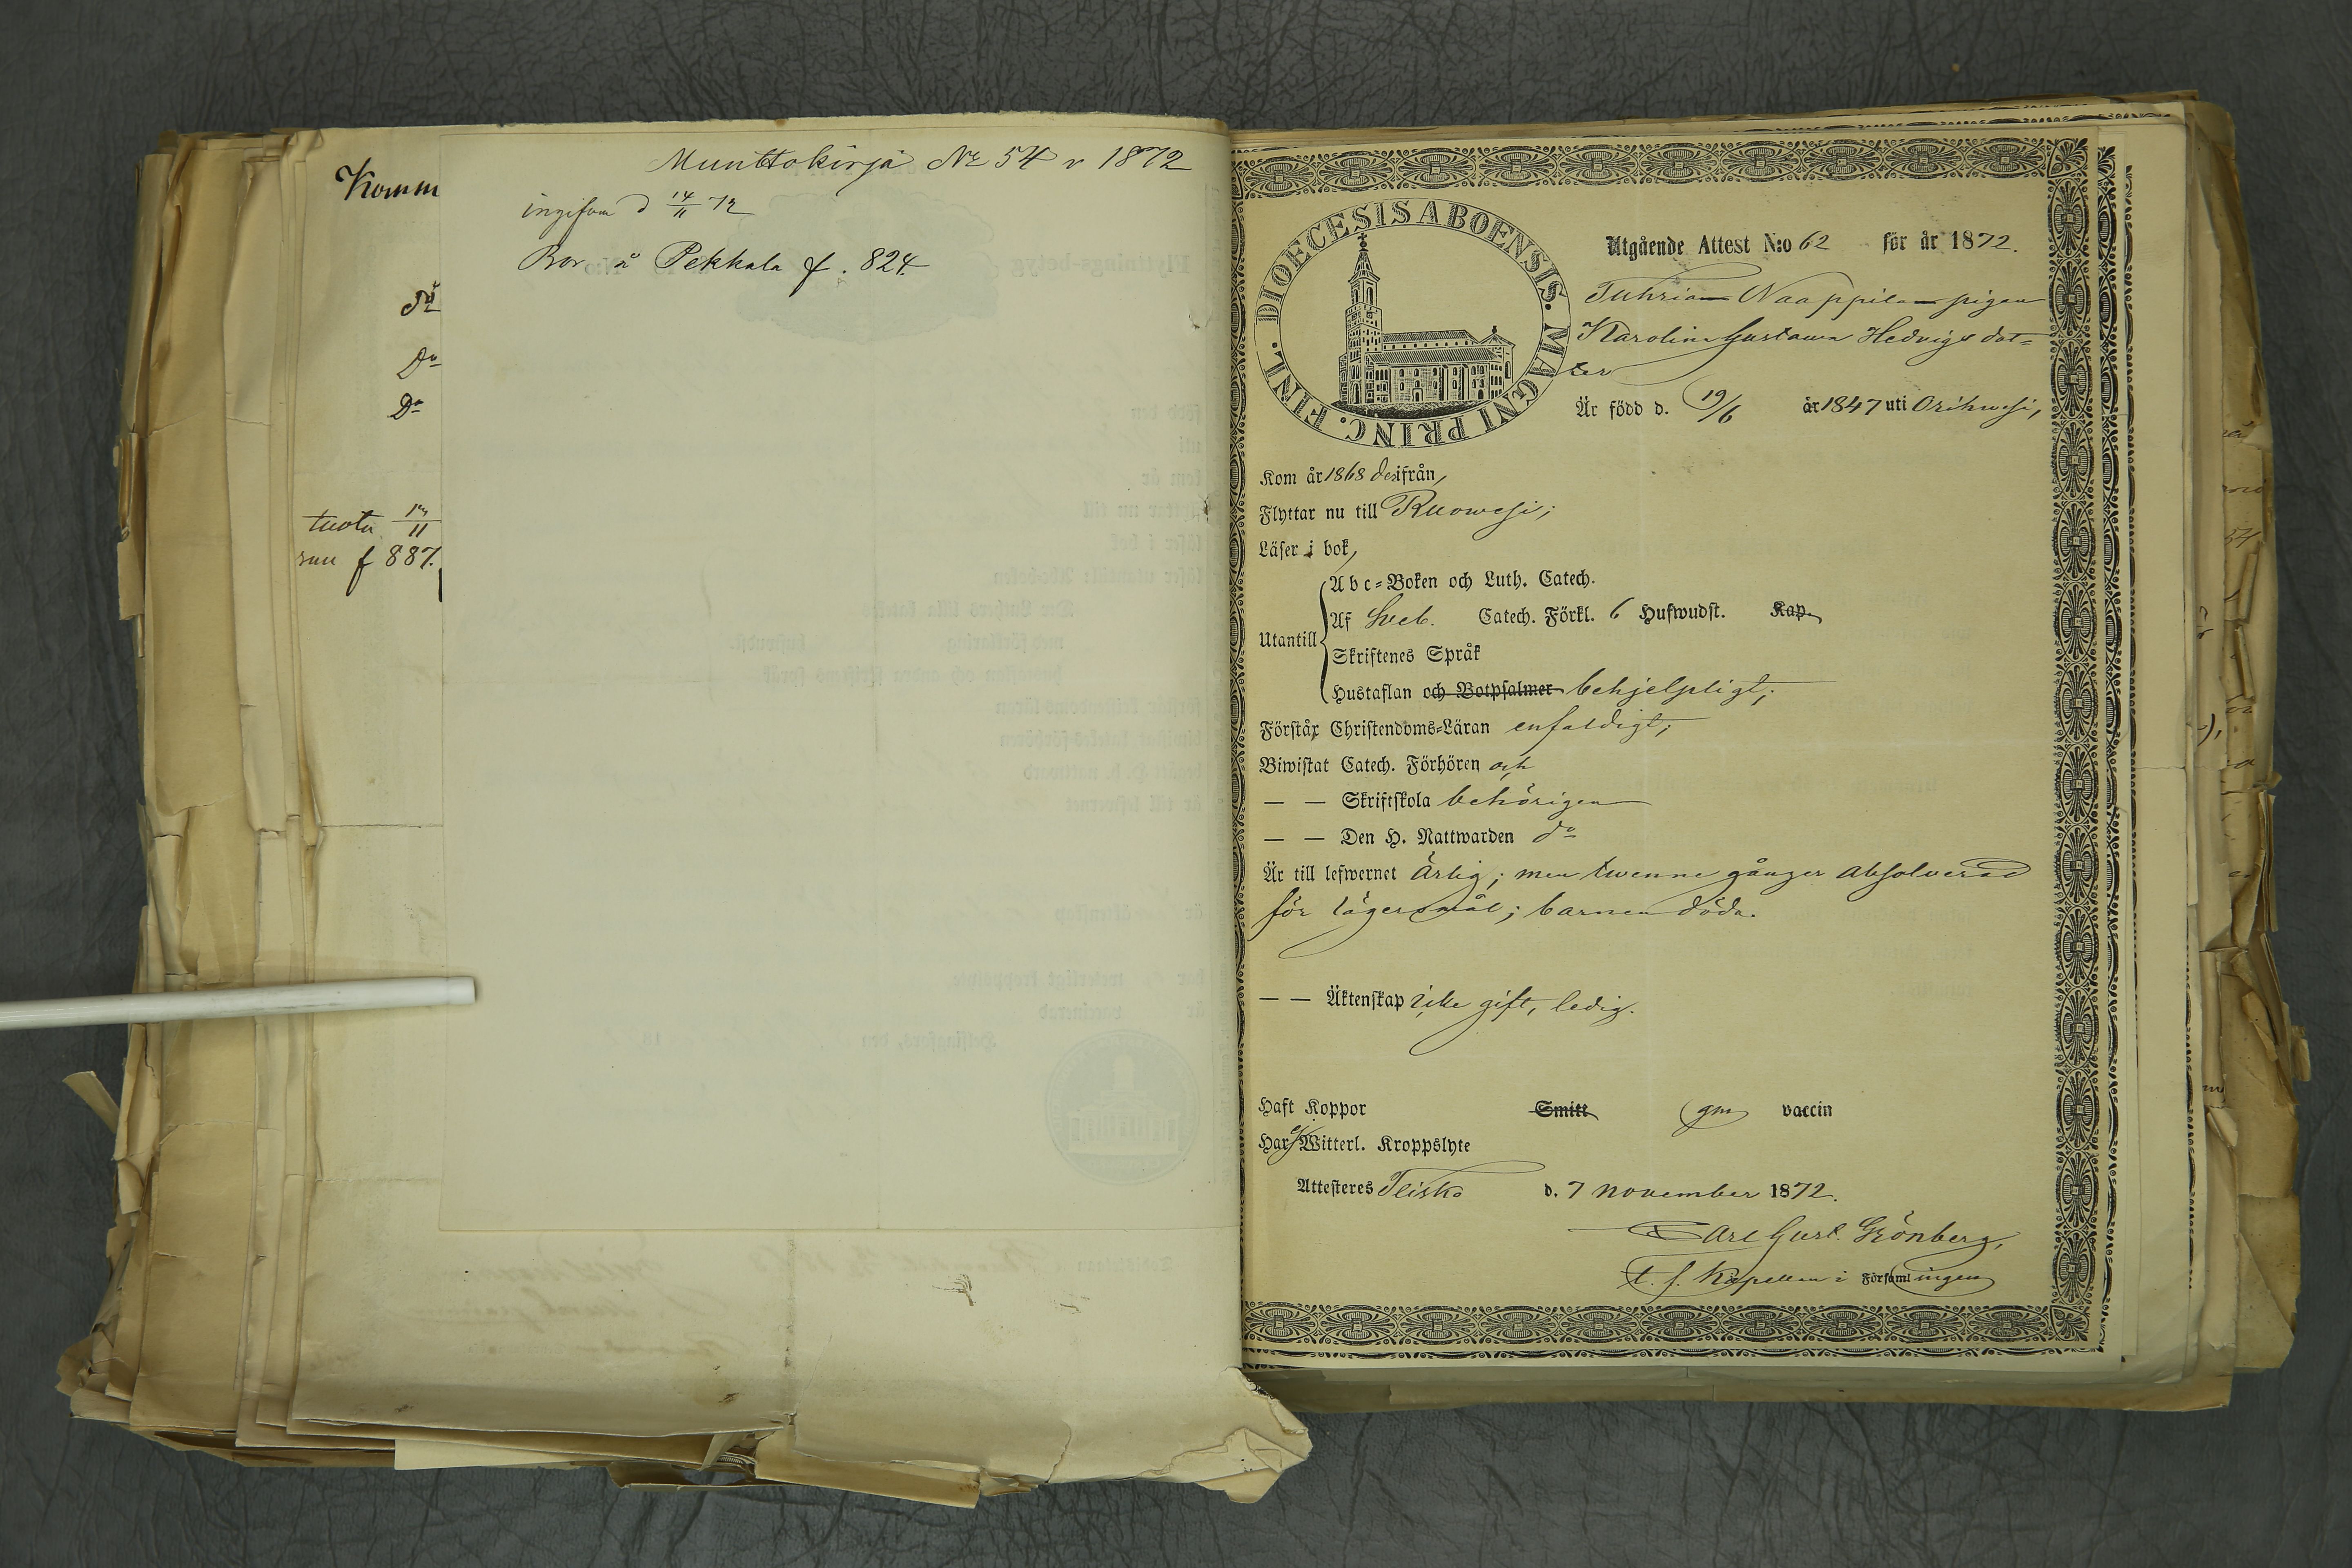 Muuttokirja No 54 v 1872
ingifven d 14/11 72
Bor å Pekkala f. 824
Komm
Do
Do
tuotu 11
f 887.
DIOECESIS ABOENSIS. MAGNI PRINC. FINL.
Utgående Attest N:o 62 för år 1872.
pigan
Karolina Gustawa Hedvigs dot=
ter
Är född d. 19/6 år 1847 uti Orihwesi,
Kom år 1868 derifrån,
Flyttar nu till Ruowesi;
Läser i bok,
Utantill
Abc=Boken och Luth. Catech.
Af Sveb. Catech. Förkl. 6 Hufwudst. Kap.
Skriftenes Språk
Hustaflan och Botpsalmer behjelpligt;
Förstår Christendoms=Läran enfaldigt;
Biwistat Catech. Förhören och
— — Skriftskola behörigen
— — Den H. Nattwarden do
Är till lefwernet Ärlig; men twenne gånger absolverad
för lägersmål; barnen döda.
— — Äktenskap icke gift, ledig.
Haft Koppor Smitt gm vaccin
Har ej Witterl. Kroppslyte
Attesteres Teisko d. 7 november 1872.
Carl Gust. Grönberg,
t. f. Kapellan i Församlingen